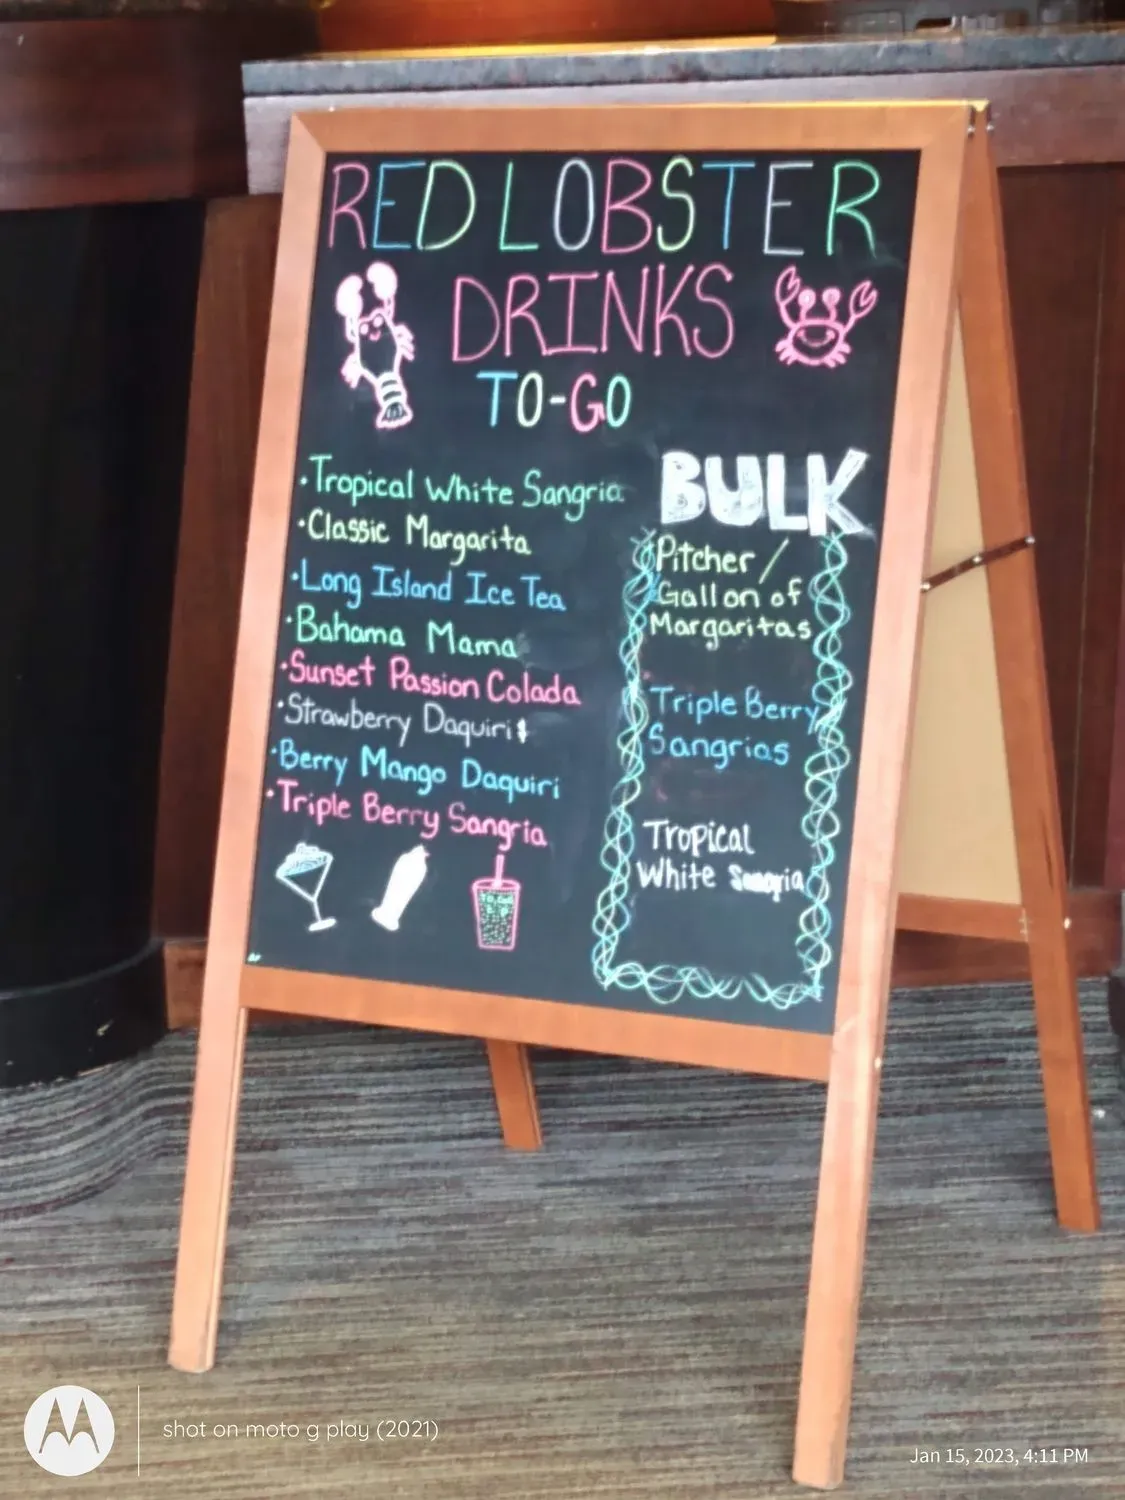 RED LOBSTER
DRINKS
TO-GO
·Tropical White Sangria
·Classic Margarita
·Long Island Ice Tea
·Bahama Mama
·Sunset Passion Colada
·Strawberry Daquiri
·Berry Mango Daquiri
·Triple Berry Sangria
BULK
Pitcher /
Gallon of
Margaritas
Triple Berry
Sangrias
Tropical
White Sangria
shot on moto g play (2021)
Jan 15, 2023, 4:11 PM